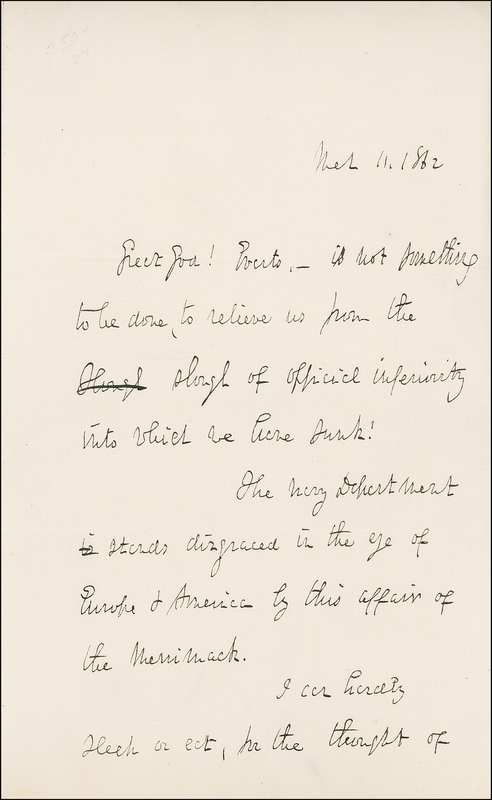 Mch 11. 1862
Great God! Evarts, – is not something
to be done, to relieve us from the
Slough slough of official inferiority
into which we have sunk!
The Navy Department
is stands disgraced in the eye of
Europe & America by this affair of
the Merrimack.
I can hardly
sleep or eat, for the thought of